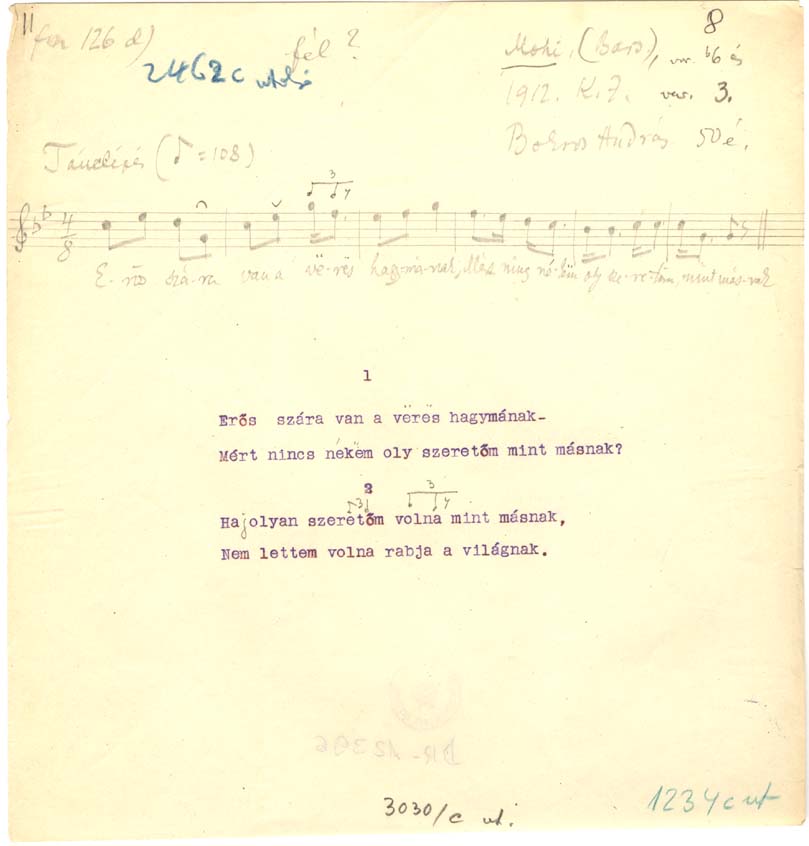 11
8
fon 126 d)
fél ?
Mohi, (Bars), var. 6 és
2462c utolsó
1912. K.Z. var. 3.
Bokros András 50 é.
Tánclépés (♪ = 108)
3
4
8
E-rős szá-ra van a vë-rës hagy-má-nak, Mér nincs né-këm oly sze-re-tőm, mint más-nak
1
Erős szára van a vërës hagymának-
Mért nincs nékëm oly szeretőm mint másnak?
2
3
3
Hajolyan szeretőm volna mint másnak,
Nem lettem volna rabja a világnak.
BR-12396
3030/c ut.
1234c ut